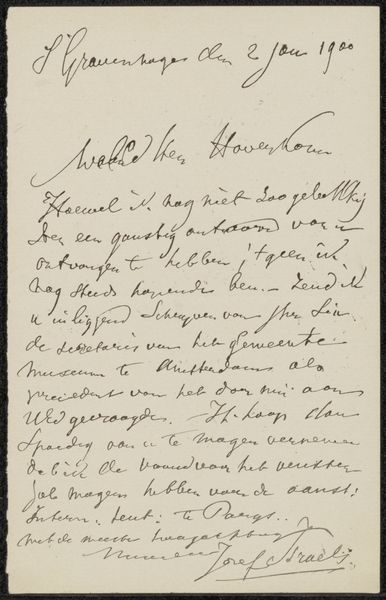 S'Gravenhage den 2 Jan 1900
Hoewel ik nog niet zoo gelukkig
ben een gunstig antwoord van u
ontvangen te hebben, 't geen ik
nog steeds hopende ben. Zend ik
u inliggend schrijven van
de Secretaris van het gemeente
museum te Amsterdam als
van het door mij aan
UEd gevraagde. Ik hoop dan
spoedig van u te mogen vernemen
dat ik de voor het
zal mogen hebben voor de aanst:
Intern: tent: te Parijs.
met de meeste hoogachting
Jozef Israëls